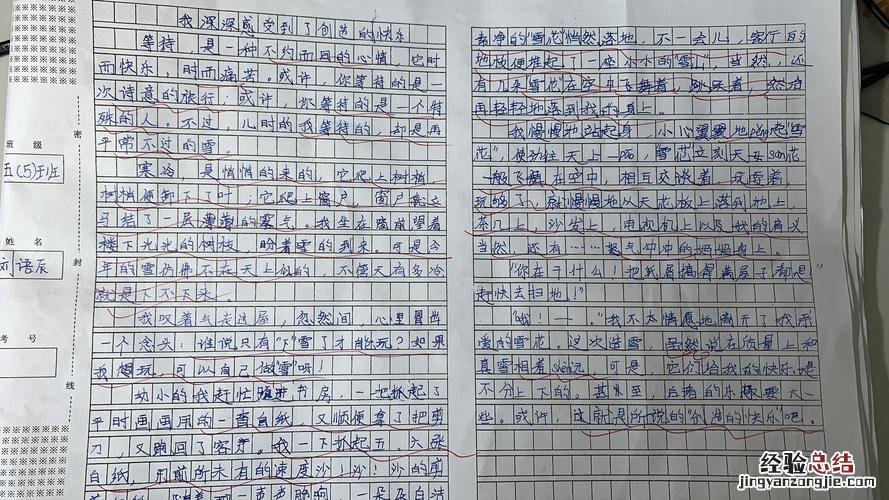 我深深感受到了创造的快乐
等待，是一种不约而同的心情，它时
而快乐，时而痛苦。或许，你等待的是一
次诗意的旅行；或许，你等待的是一个特
殊的人。不过，儿时的我等待的，却是再
平常不过的雪。
寒冷，是悄悄的来的，它爬上树梢，
树梢便卸下了叶；它爬上窗户，窗户就立
马结了一层薄薄的雾气。我坐在窗前望着
楼下光光的树枝，盼着雪的到来，可是今
年的雪仿佛不在天上似的，不管天有多冷
就是下不下来。
我叹着气走进屋，忽然间，心里冒出
一个念头：谁说只有"下"雪了才能玩？如果
我想玩，可以自己"做雪"呀！
幼小的我赶忙跑进书房，一把抓起了
平时画画用的一沓白纸，又顺便拿了把剪
刀，又跑回了客厅。我一下抓起五、六张
白纸，用前所未有的速度沙！沙！沙的剪
一朵朵白洁
班级
五(5)班
姓名
刘语辰
考号
密
封
线
素净的"雪花"悄然落地，不一会儿，客厅的
地板便堆起了一座小小的"雪山"，当然，还
有几朵"雪花"在空中飞舞着，跳跃着，然后
再轻轻地落到我的身上。
我慢慢地站起身，小心翼翼地peng起"雪
花"，使劲往天上一po，"雪花"立刻天女san花
一般飞舞在空中，相互交谈着，玩耍着，
玩够了，就慢慢地从天花板上落到地上，
茶几上，沙发上，电视机上以及我的肩头
当然，还有……怒气冲冲的妈妈身上。
"你在干什么！把纸屑搞得满屋子都是"
赶快去扫地！"
"哦！一。"我不太情愿地离开了我那
心爱的雪花。这次造雪，虽然说在质量上和
真雪相差shen远，可是，它们给我的快乐是
不分上下的。甚至，自造的乐趣要大一
些。或许，这就是所说的"创造的快乐"吧。
经验总结
jingyanzongjie.com